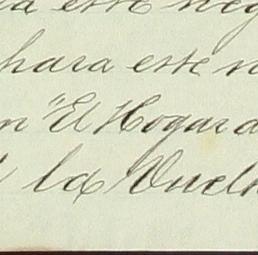 ia este neg
hara este n
n "El Hogar d
la Vuelt